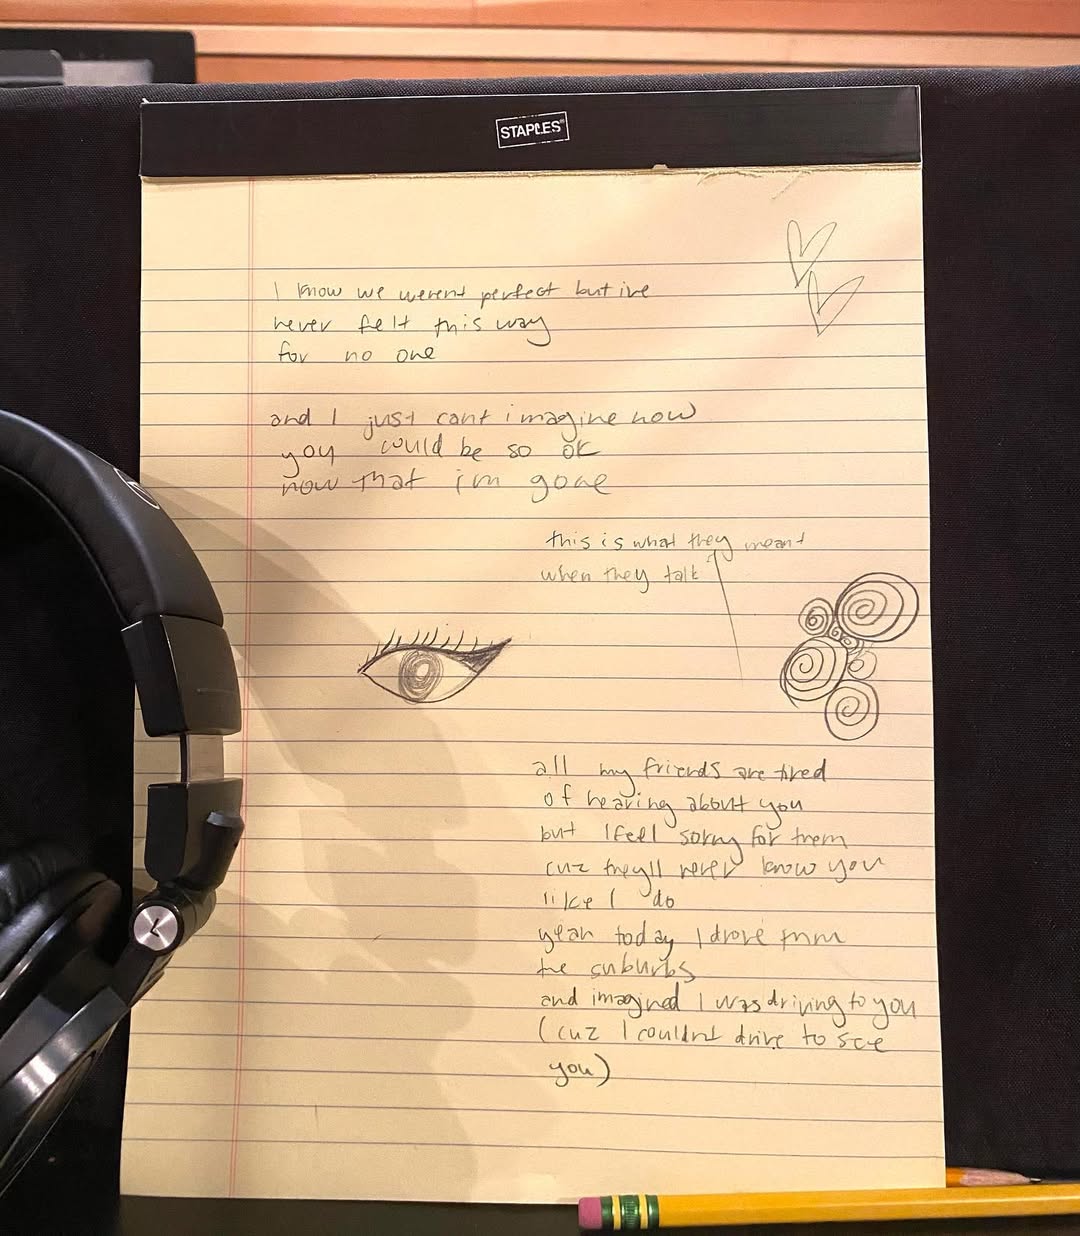 STAPLES®
I know we werent perfect but ive
never felt this way
for no one
and I just cant imagine how
you could be so ok
now that im gone
this is what they meant
when they talk
all my friends are tired
of hearing about you
but I feel sorry for them
cuz they'll never know you
like I do
yeah today I drove thru
the suburbs
and imagined I was driving to you
(cuz I couldnt drive to see
you)